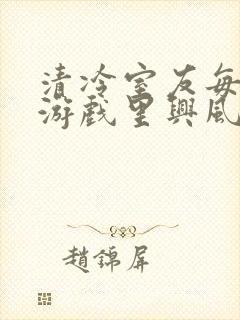 清冷室友每
游戲里興風
趙錦屏